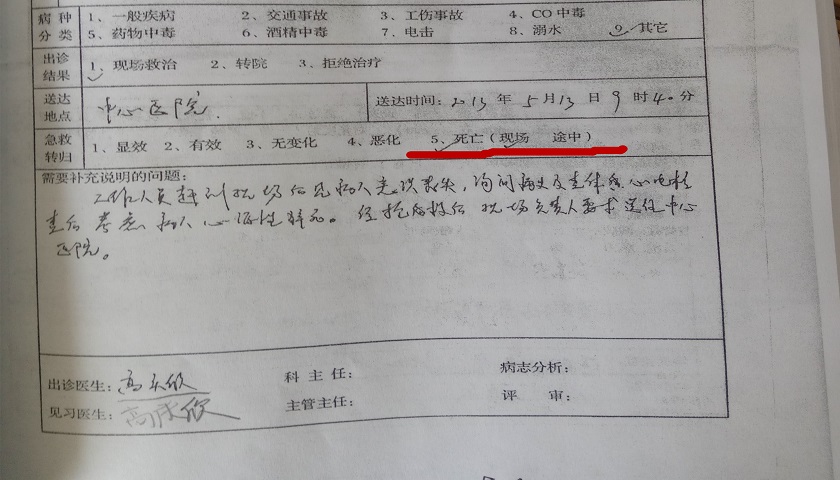 病 种 1、一般疾病 2、交通事故 3、工伤事故 4、CO中毒
分 类 5、药物中毒 6、酒精中毒 7、电击 8、溺水 9、其它
出诊 1、现场救治 2、转院 3、拒绝治疗
结果
送达 中心医院. 送达时间:2013年5月13日9时40分
地点
急救 1、显效 2、有效 3、无变化 4、恶化 5、死亡(现场 途中)
转归
需要补充说明的问题:
工作人员赶到现场后见病人意识丧失,询问病史及查体系心电检
查后 考虑 病人心源性猝死。经抢救后 现场负责人要求送往中心
医院。
出诊医生: 科 主 任: 病志分析:
见习医生: 主管主任: 评 审: